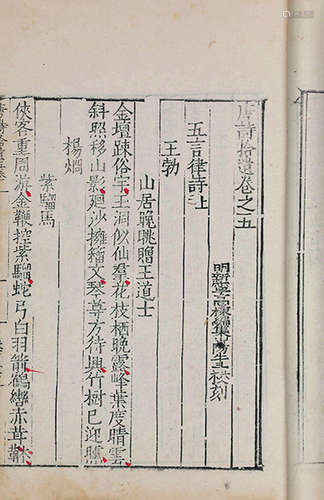 唐詩拾遺卷之五
明新寧高棅編
五言律詩上
王勃
山居晚眺贈王道士
金壇疎俗宇玉洞似仙羣花枝棲晚露峰葉度晴雲
斜照移山影迴沙擁籀文琴尊方待興竹樹已迎曛
楊烱
紫騮馬
俠客重周遊金鞭控紫騮蛇弓白羽箭鶴轡赤茸鞦